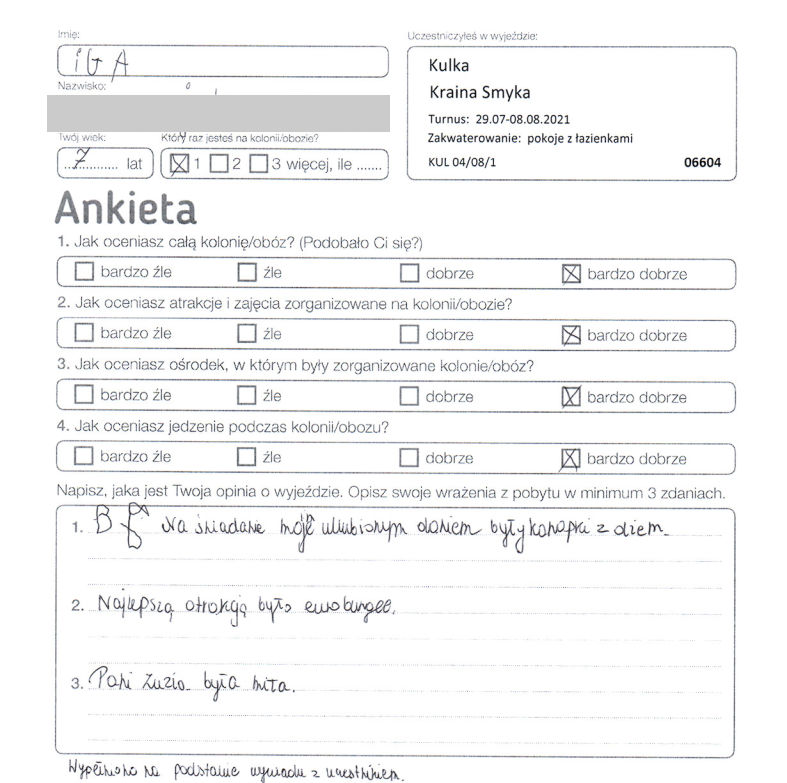 Imię:
IGA
Nazwisko:
Twój wiek:
Który raz jesteś na kolonii/obozie?
7 lat
1 2 3 więcej, ile .......
Uczestniczyłeś w wyjeździe:
Kulka
Kraina Smyka
Turnus: 29.07-08.08.2021
Zakwaterowanie: pokoje z łazienkami
KUL 04/08/1 06604
Ankieta
1. Jak oceniasz całą kolonię/obóz? (Podobało Ci się?)
bardzo źle źle dobrze bardzo dobrze
2. Jak oceniasz atrakcje i zajęcia zorganizowane na kolonii/obozie?
bardzo źle źle dobrze bardzo dobrze
3. Jak oceniasz ośrodek, w którym były zorganizowane kolonie/obóz?
bardzo źle źle dobrze bardzo dobrze
4. Jak oceniasz jedzenie podczas kolonii/obozu?
bardzo źle źle dobrze bardzo dobrze
Napisz, jaka jest Twoja opinia o wyjeździe. Opisz swoje wrażenia z pobytu w minimum 3 zdaniach.
1. Na śniadanie ulubionym daniem były kanapki z
2. Najlepszą atrakcją było eurobungee.
3. Pani Zuzia była miła.
Wypełniono na podstawie wywiadu z uczestnikiem.